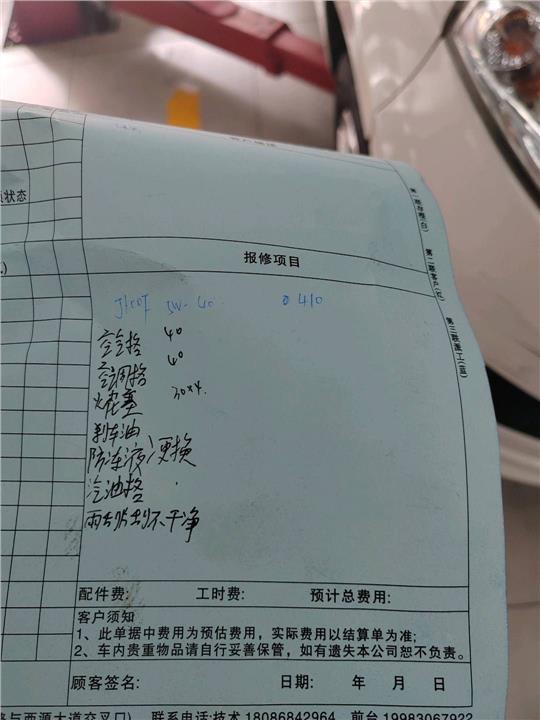 状态
第一联存根(白)
第二联客户(红)
第三联派工(蓝)
报修项目
5W-40 410
空气格 40
空调格 40
火花塞 30×4
刹车油
防冻液 更换
汽油格
雨刮片刮不干净
配件费: 工时费: 预计总费用:
客户须知
1、此单据中费用为预估费用，实际费用以结算单为准;
2、车内贵重物品请自行妥善保管，如有遗失本公司恕不负责。
顾客签名: 日期: 年 月 日
与西源大道交叉口) 联系电话:技术18086842964 前台19983067922